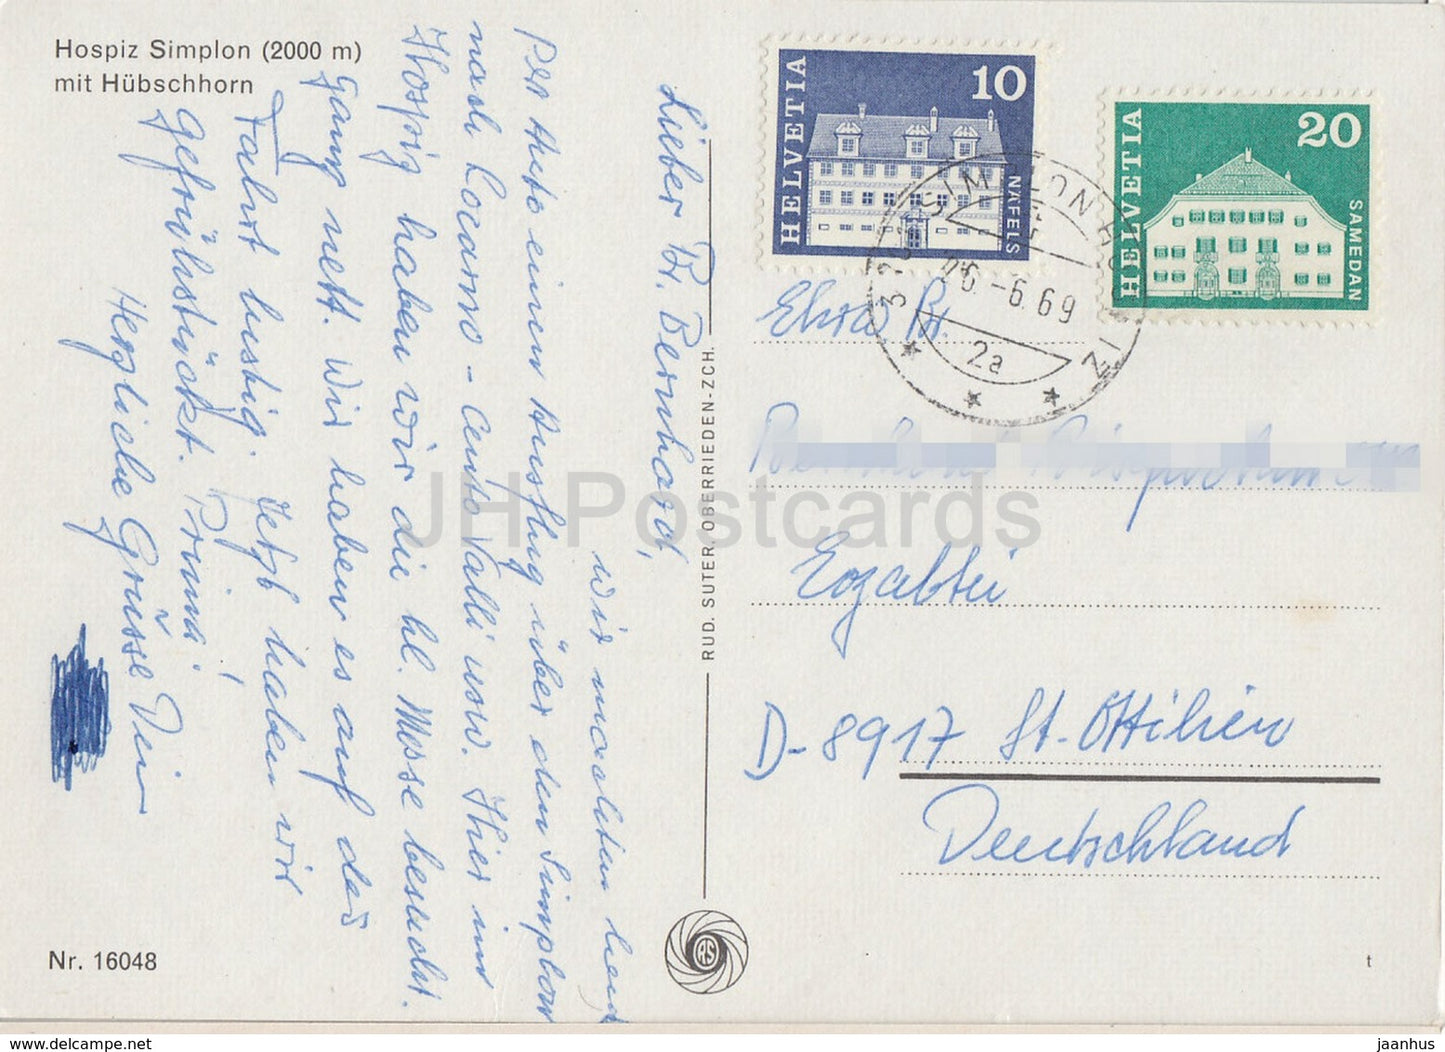 Hospiz Simplon (2000 m)
mit Hübschhorn
Lieber Br. Bernhard,
wir machten heut
Per Auto einen Ausflug über den Simplon
nach Locarno - Centovalli usw. Hier im
Hospiz haben wir die hl. Messe besucht.
Ganz nett. Wir haben es auf der
Fahrt lustig. Jetzt haben wir
Gefrühstückt. Prima!
Herzliche Grüsse Dein
Nr. 16048
RUD. SUTER, OBERRIEDEN-ZCH.
RS
HELVETIA
10
NÄFELS
HELVETIA
20
SAMEDAN
SIMPLON
-6.69
2a
Ehrw. Br.
Erzabtei
D-8917 St. Ottilien
Deutschland
t
JH Postcards
delcampe.net
jaanhus